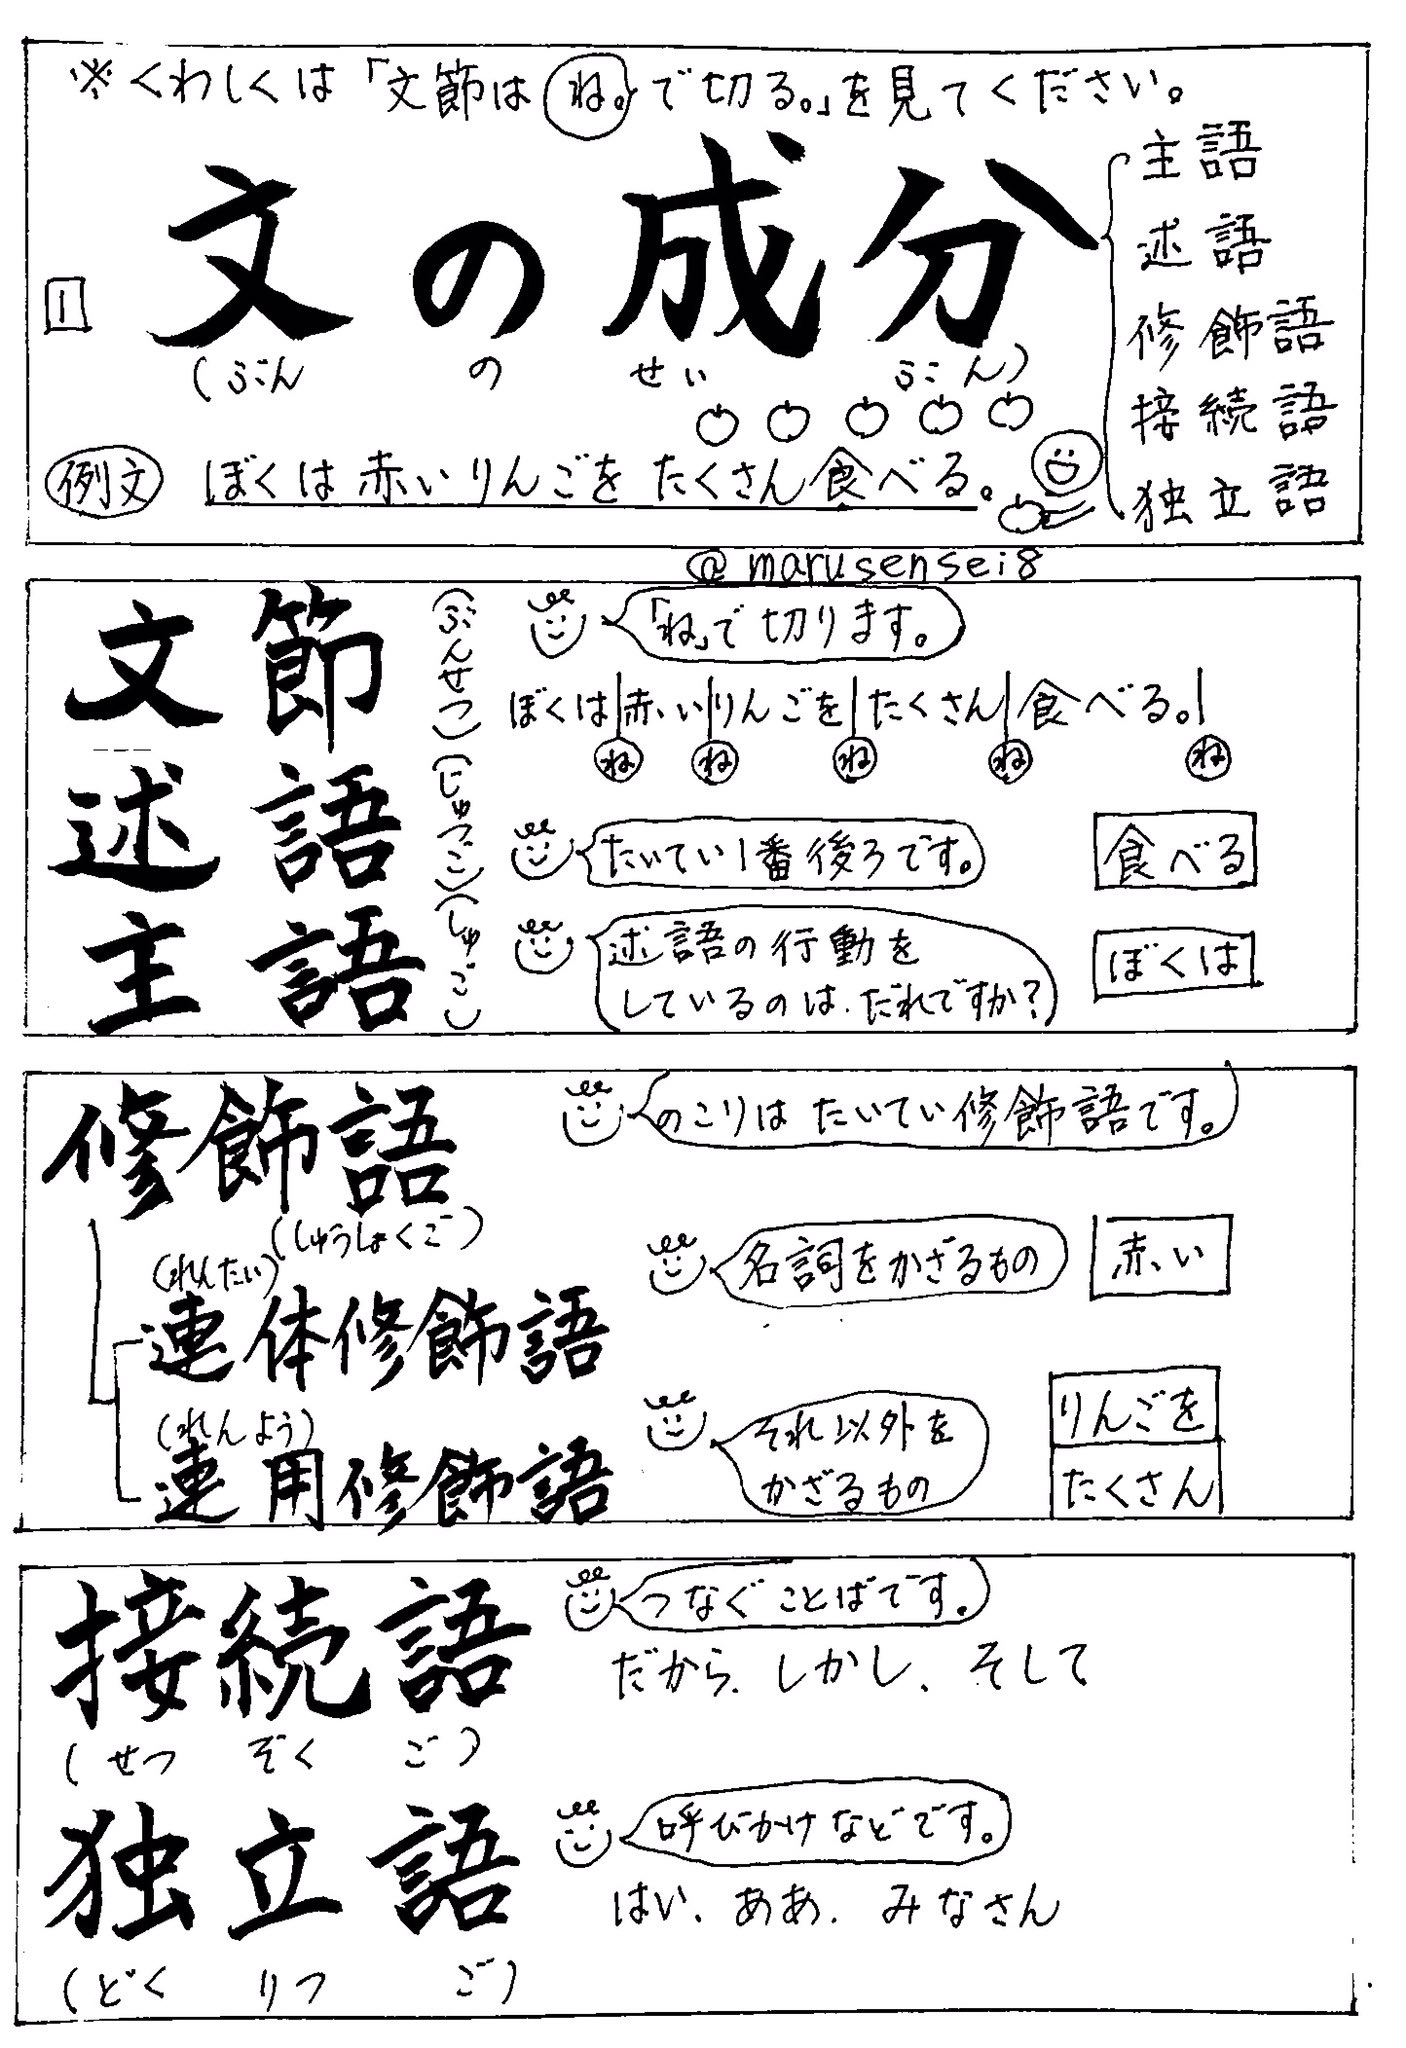 ※くわしくは「文節はね。で切る。」を見てください。
1
文の成分
(ぶんのせいぶん)
主語
述語
修飾語
接続語
独立語
例文 ぼくは赤いりんごをたくさん食べる。
@marusensei8
文節
(ぶんせつ)
「ね」で切ります。
ぼくは|赤い|りんごを|たくさん|食べる。|
ね ね ね ね ね
述語
(じゅつご)
たいてい1番後ろです。
食べる
主語
(しゅご)
述語の行動を
しているのは、だれですか?
ぼくは
修飾語
(しゅうしょくご)
のこりはたいてい修飾語です。
(れんたい)
連体修飾語
名詞をかざるもの
赤い
(れんよう)
連用修飾語
それ以外を
かざるもの
りんごを
たくさん
接続語
(せつぞくご)
つなぐことばです。
だから、しかし、そして
独立語
(どくりつご)
呼びかけなどです。
はい、ああ、みなさん